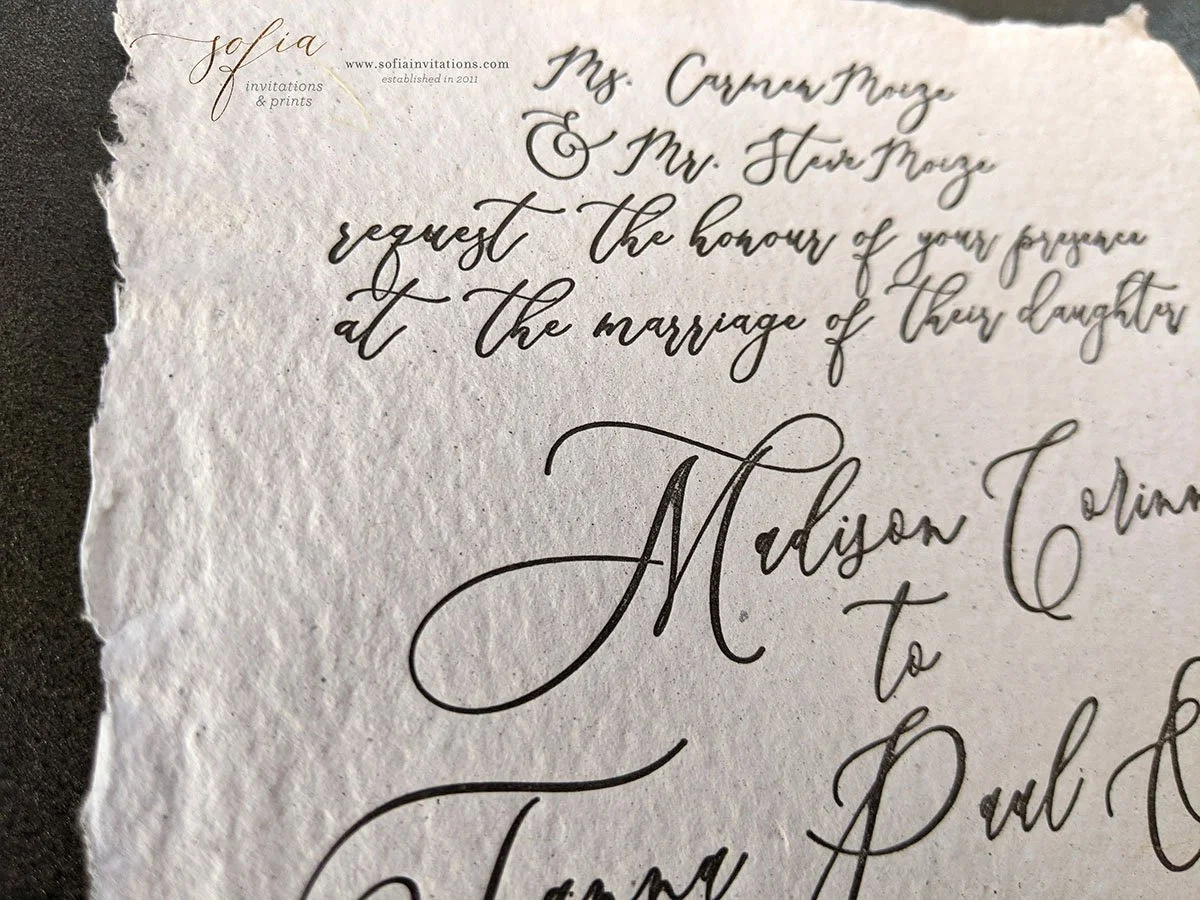 sofia
invitations
& prints
www.sofiainvitations.com
established in 2011
Ms. Carmen Moize
& Mr. Steve Moize
request the honour of your presence
at the marriage of their daughter
Madison Corinn
to
Paul